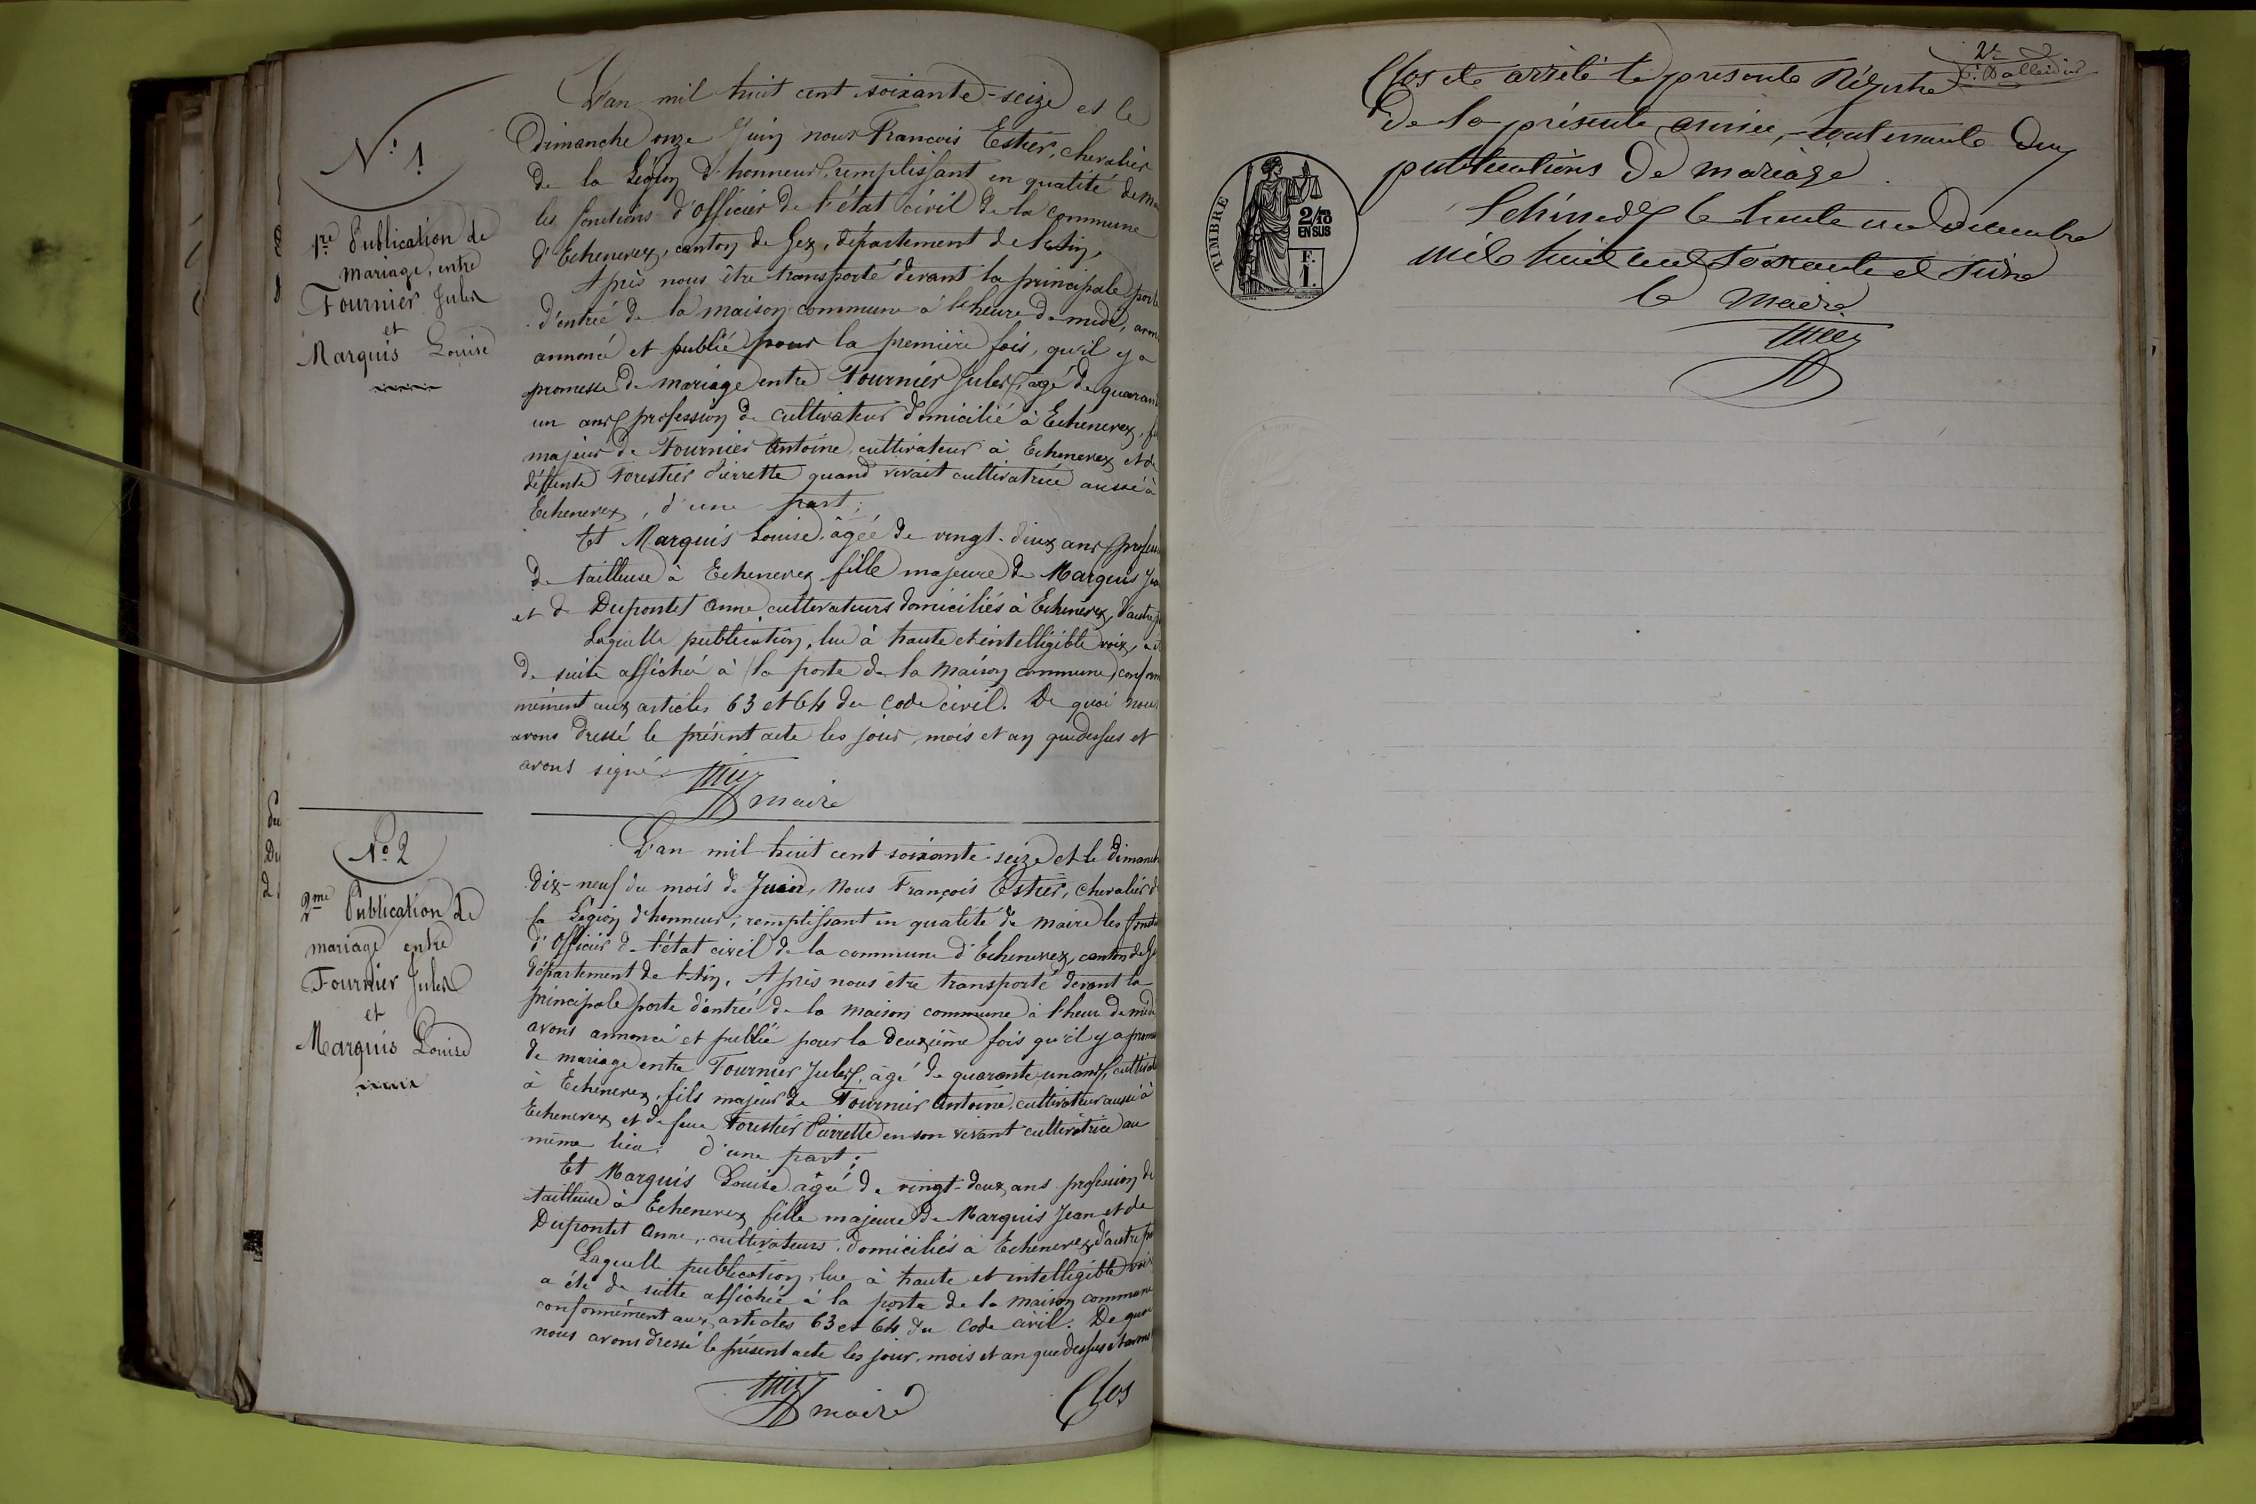 N° 1
1re Publication de
mariage, entre
Fournier Jules
et
Marquis Louise
L'an mil huit cent soixante-seize et le
Dimanche onze Juin nous François Estier, chevalier
de la Légion d'honneur, remplissant en qualité de
les fonctions d'officier de l'état civil de la commune
d'Echenevex, canton de Gex, département de l'Ain,
Après nous être transporté devant la principale porte
d'entrée de la maison commune à l'heure de midi, avons
annoncé et publié pour la première fois, qu'il y a
promesse de mariage entre Fournier Jules, âgé de quaran
un ans, profession de cultivateur domicilié à Echenevex,
majeur de Fournier Antoine, cultivateur à Echenevex et de
défunte Forestier Pierrette quand vivait cultivatrice aussi à
Echenevex, d'une part;
Et Marquis Louise, âgée de vingt-deux ans, profes
de tailleuse à Echenevex fille majeure de Marquis Jea
et de Dupontet Anne cultivateurs domiciliés à Echenevex, d'autre
Laquelle publication, lue à haute et intelligible voix, a
de suite affichée à la porte de la maison commune confor
mément aux articles 63 et 64 du code civil. De quoi nous
avons dressé le présent acte les jour, mois et an que dessus et
avons signé.
maire
N° 2
2me Publication de
mariage entre
Fournier Jules
et
Marquis Louise
L'an mil huit cent soixante-seize et le dimanche
dix-neuf du mois de Juin, Nous François Estier, chevalier d
la Légion d'honneur, remplissant en qualité de maire les foncti
d'officier de l'état civil de la commune d'Echenevex, canton de Ge
département de l'Ain, Après nous être transporté devant la
principale porte d'entrée de la maison commune à l'heure de midi
avons annoncé et publié pour la deuxième fois qu'il y a prom
de mariage entre Fournier Jules, âgé de quarante un ans, cultivat
à Echenevex, fils majeur de Fournier Antoine, cultivateur aussi à
Echenevex et de feue Forestier Pierrette en son vivant cultivatrice au
même lieu; d'une part;
Et Marquis Louise âgée de vingt-deux ans profession de
tailleuse à Echenevex fille majeure de Marquis Jean et de
Dupontet Anne, cultivateurs, domiciliés à Echenevex, d'autre
Laquelle publication, lue à haute et intelligible voix
a été de suite affichée à la porte de la maison commune
conformément aux articles 63 et 64 du code civil. De quoi
nous avons dressé le présent acte les jour, mois et an que dessus et avons
maire
Clos
2e
Clos et arrêté le présente Régistre
De la présente année, contenant deux
publications de mariage.
Echenevex le trente un décembre
mil huit cent soixante et seize
le Maire
TIMBRE
2/10
EN SUS
F.
1.